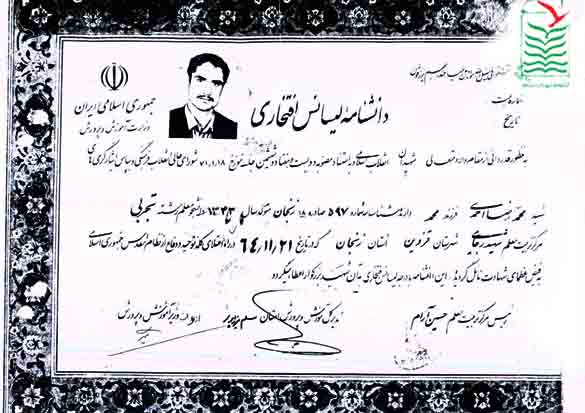 جمهوری اسلامی ایران
وزارت آموزش و پرورش
شماره ثبت
تاریخ
دانشنامهٔ لیسانس افتخاری
به منظور قدردانی از مقام والا و متعالی شهیدان انقلاب اسلامی و به استناد مصوبه دویست و هفتاد و ششمین جلسه مورخ ۷۱٫۰۸٫۱۸ شورای عالی انقلاب فرهنگی و بپاس ایثارگری های
شهید محمدرضا احمدی فرزند محمد دارنده شناسنامه شماره ۵۹۷ صادره از زنجان متولد سال ۱۳۴۳ دانشجو معلم رشته تجربی
مرکز تربیت معلم شهید رجایی شهرستان قزوین استان زنجان که در تاریخ ۶۴٫۱۱٫۲۱ در راه اعتلای کلمه توحید و دفاع از نظام مقدس جمهوری اسلامی
به فیض عظمای شهادت نائل گردید این دانشنامه با درجه لیسانس افتخاری به آن شهید بزرگوار اعطا میگردد
رئیس مرکز تربیت معلم حسین آرام
مدیر کل آموزش و پرورش استان
وزیر آموزش و پرورش